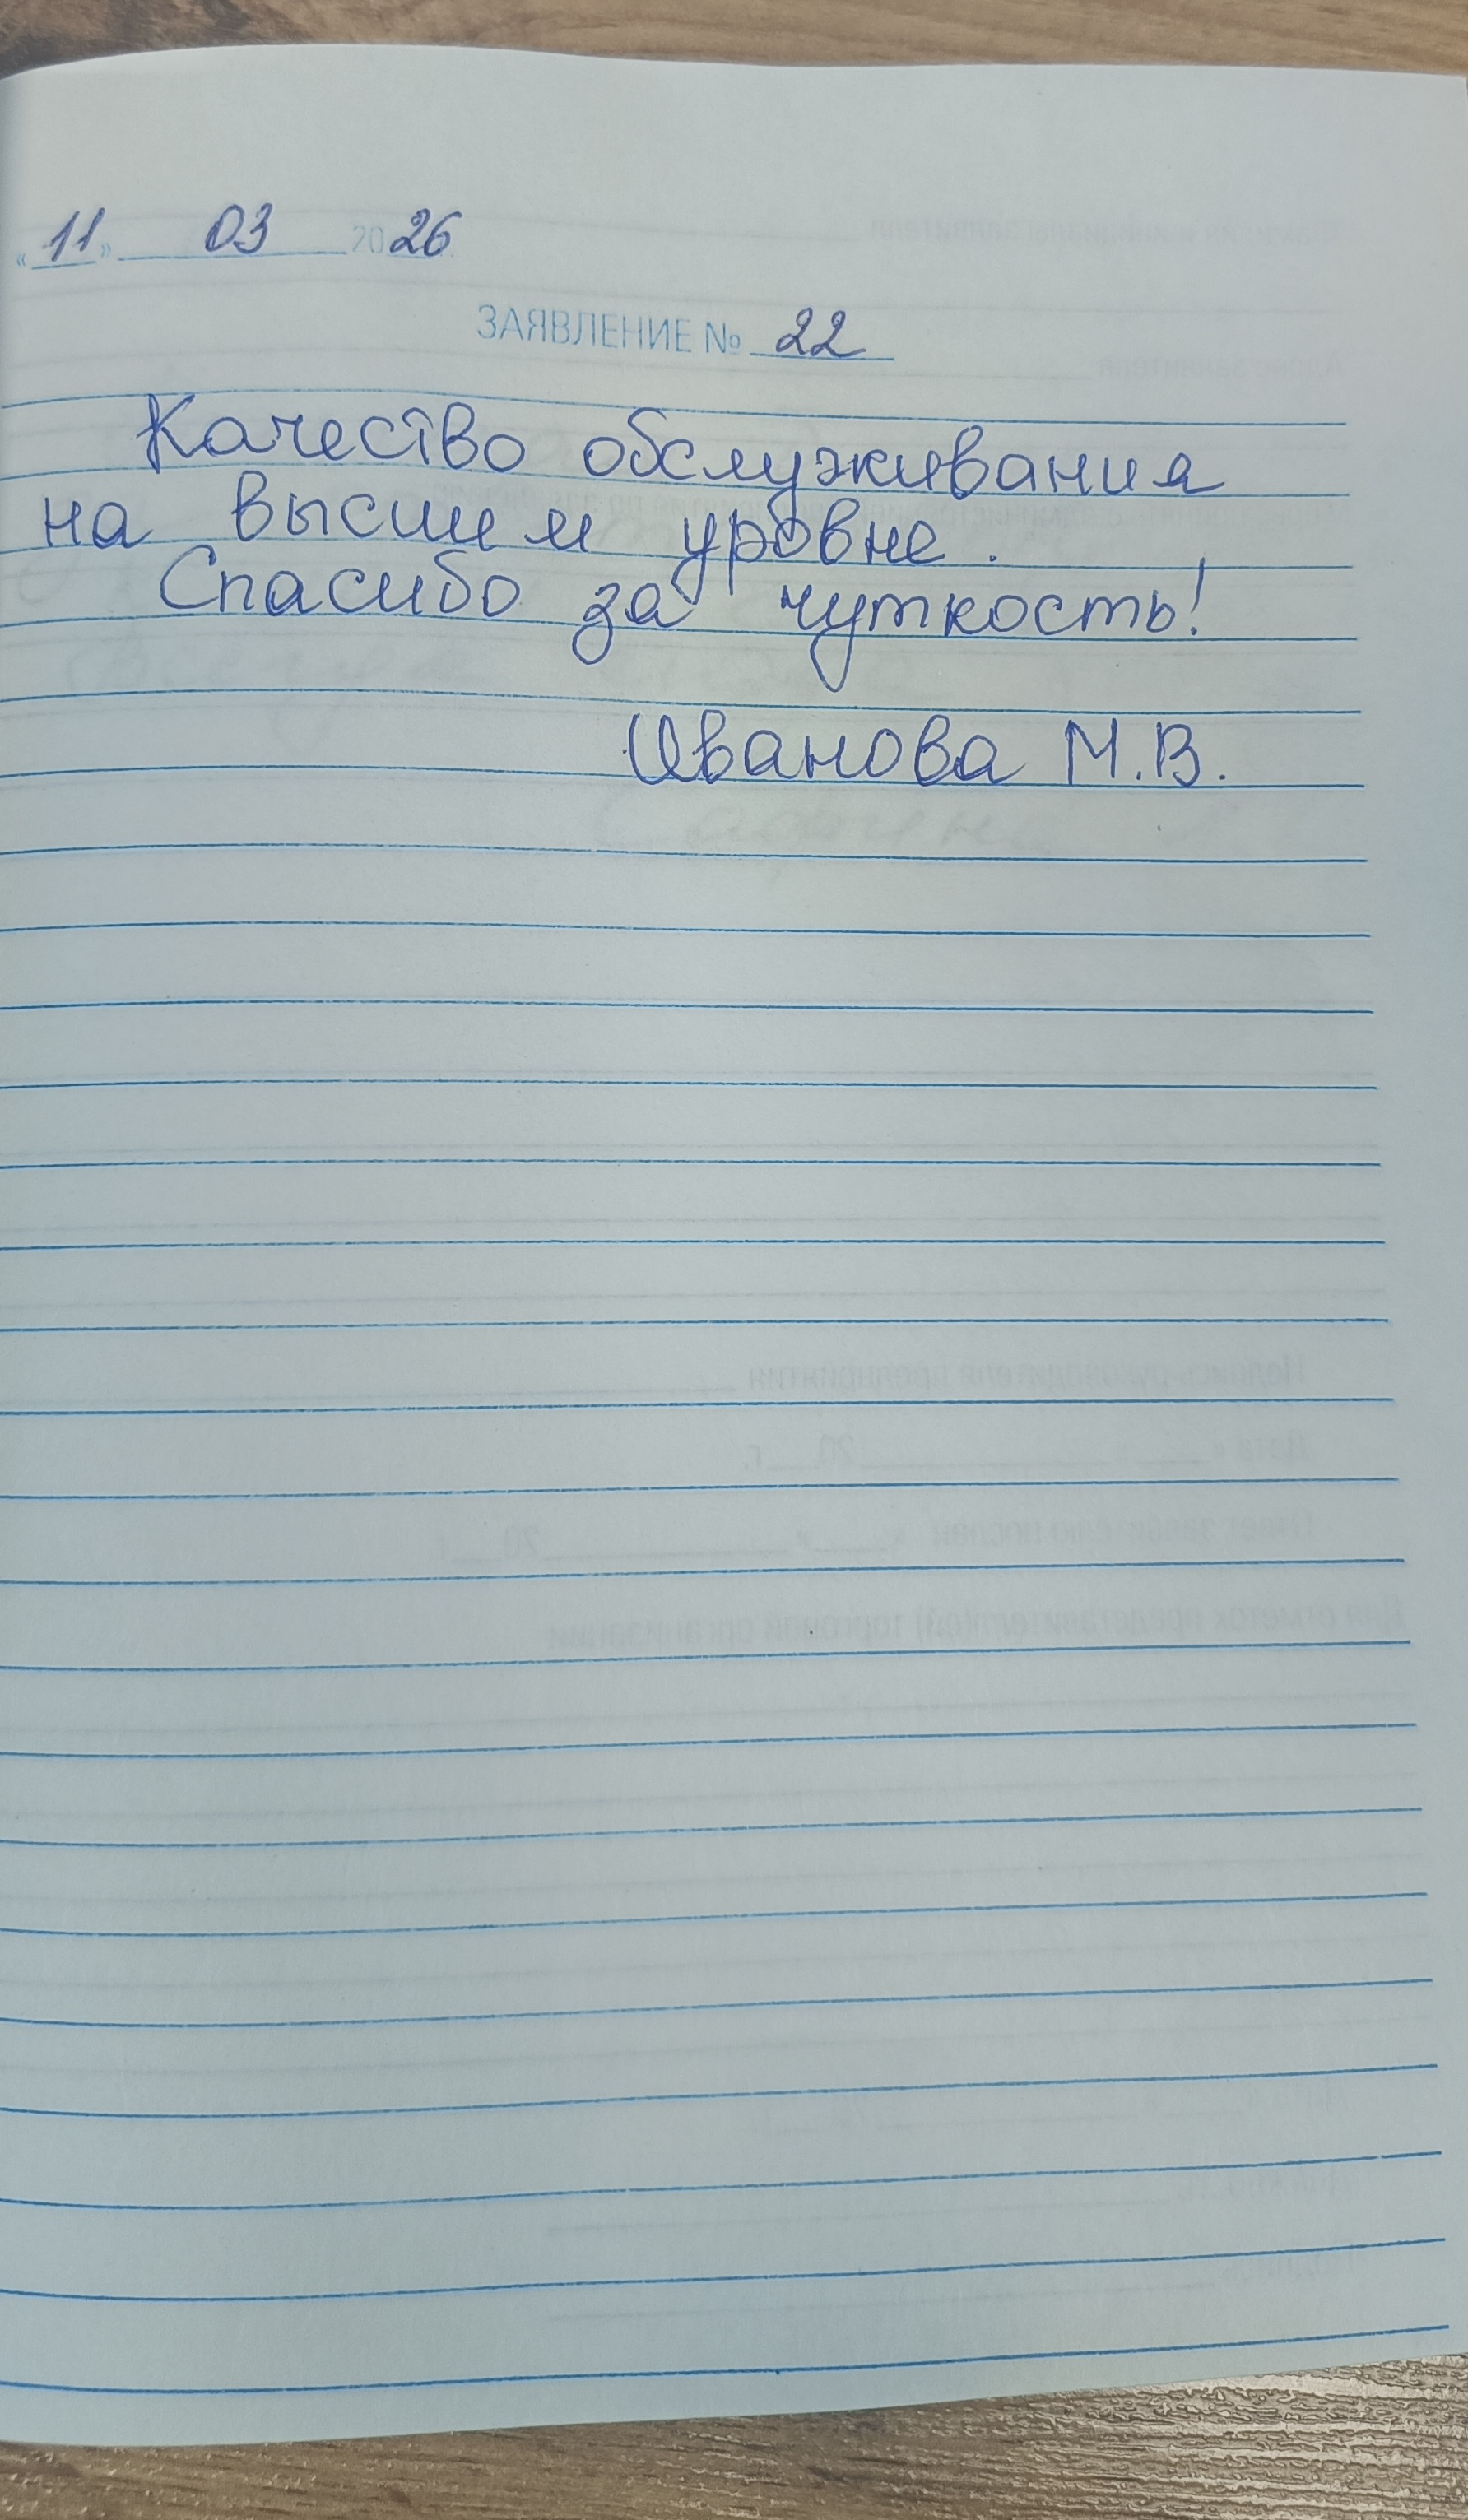 «11» 03 2026
ЗАЯВЛЕНИЕ № 22
Качество обслуживания
на высшем уровне.
Спасибо за чуткость!
Иванова М.В.